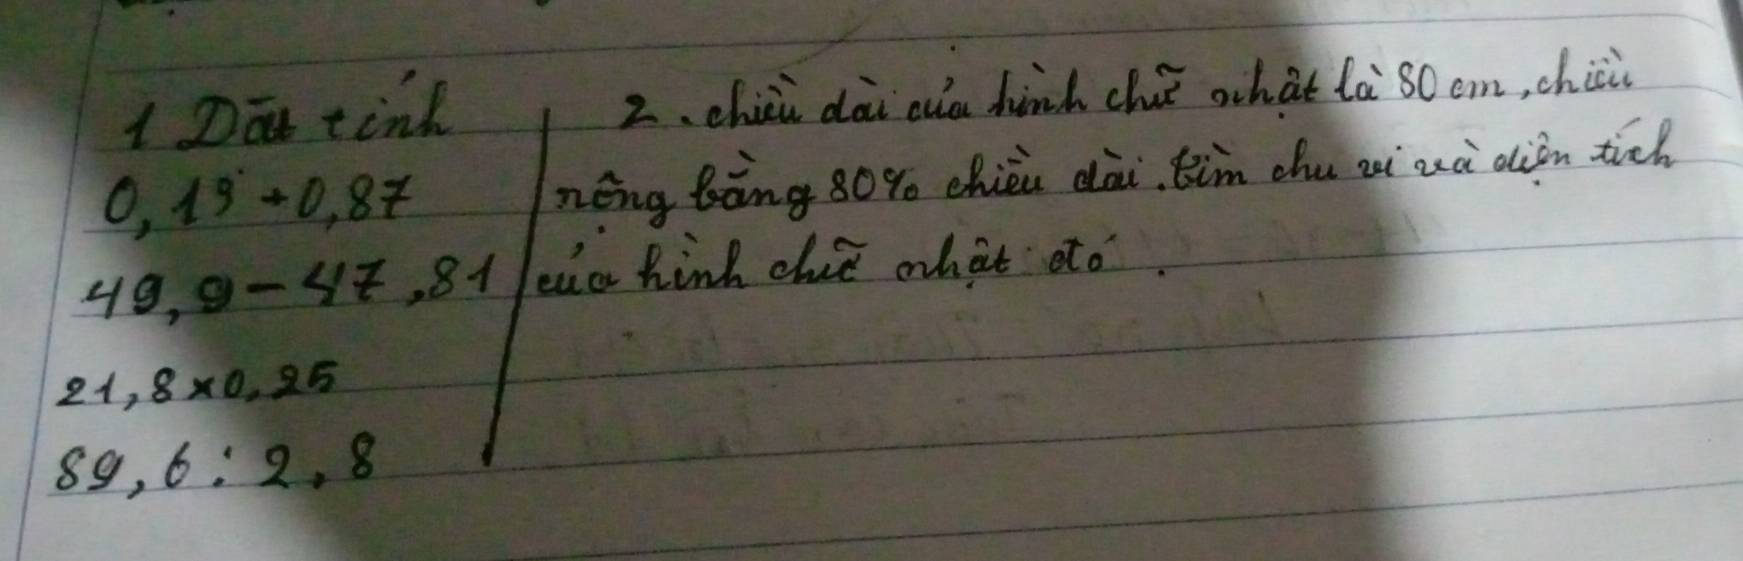 1 Đặt tính
0,19 + 0,87
49,9 - 47,81
21,8 x 0,25
89,6 : 2,8
2. chiều dài của hình chữ nhật là 80 cm, chiều
rộng bằng 80% chiều dài. tìm chu vi và diện tích
của hình chữ nhật đó.